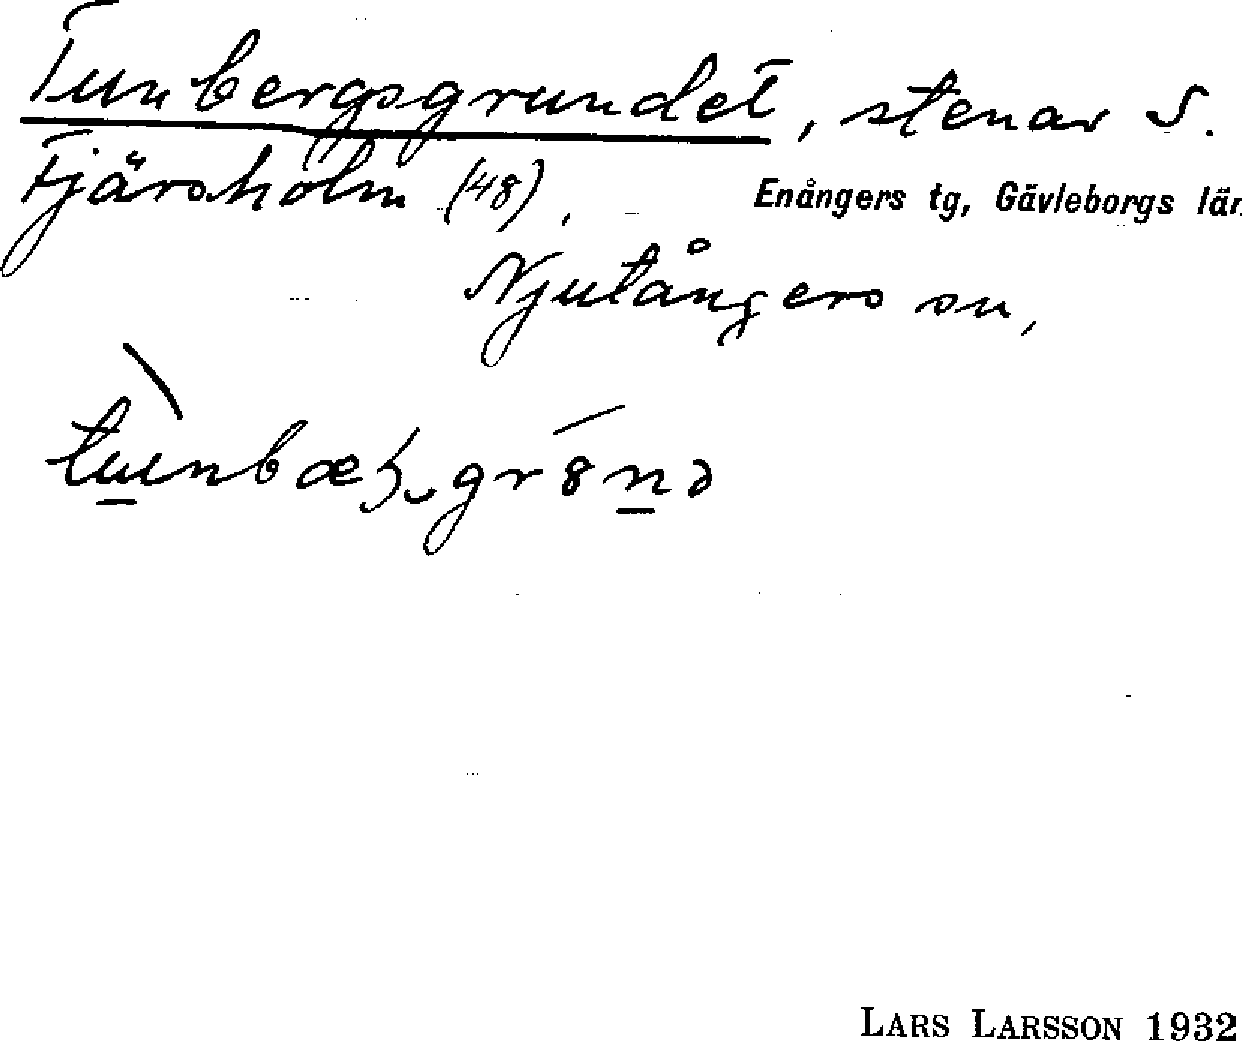 Tunbergsgrundet, stenar S.
Fjärsholm (48),
Enångers tg, Gävleborgs län
Njutångers sn,
LARS LARSSON 1932